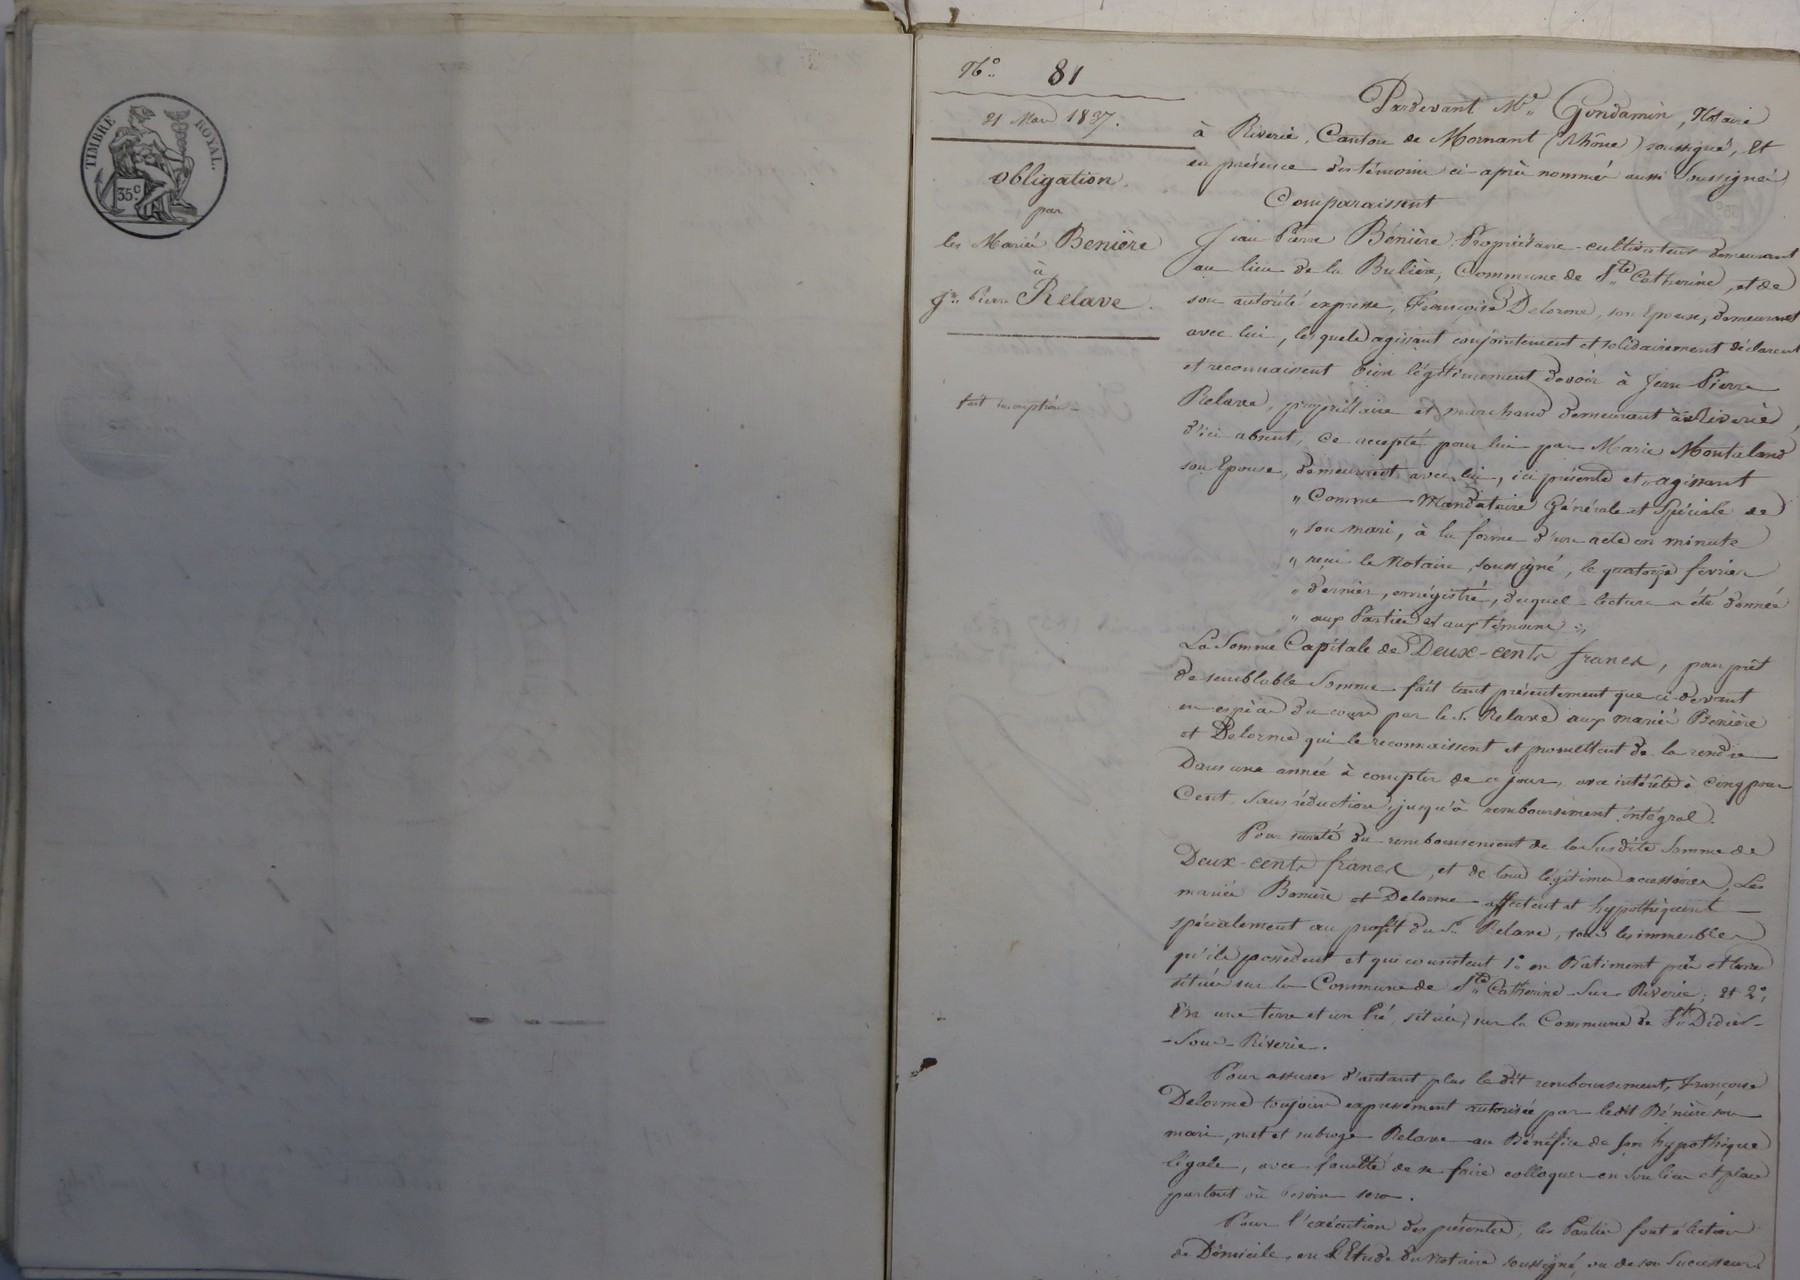 TIMBRE ROYAL.
35.c
N.o 81
21 Mars 1837.
Obligation.
par
les Mariés Benière
à
Jn. Pierre Relave.
fait inscription
Pardevant Me. Gondamin, Notaire
à Riverie, Canton de Mornant (Rhône) soussigné, Et
en présence des témoins ci-après nommés aussi Soussignés
Comparaissent
Jean Pierre Bénière, Propriétaire-cultivateur demeurant
au lieu de la Bulière, Commune de Ste. Catherine, et de
son autorité expresse, Françoise Delorme, son Epouse, demeurant
avec lui, lesquels agissant conjointement et solidairement déclarent
et reconnaissent bien légitimement devoir à Jean Pierre
Relave, propriétaire et marchand demeurant à Riverie,
d'ici absent, ce accepté pour lui par Marie Montaland
son Epouse, demeurant avec lui, ici présente et agissant
" Comme Mandataire Générale et Spéciale de
" son mari, à la forme d'un acte en minute
" reçu le Notaire soussigné, le quatorze février
" dernier, enrégistré, duquel lecture a été donnée
" aux Parties et aux témoins
La Somme Capitale de Deux-cents francs, pour prêt
de semblable Somme fait tant présentement que ci-devant
en espèces du cours par le Sr. Relave aux mariés Benière
et Delorme qui le reconnaissent et promettent de la rendre
Dans une année à compter de ce jour, avec intérêts à cinq pour
Cent sans réduction, jusqu'à remboursement intégral.
Pour sureté du remboursement de la Susdite Somme de
Deux-cents francs, et de tous légitimes accessoires, Les
mariés Benière et Delorme affectent et hypothèquent
spécialement au profit du Sr. Relave, tous les immeubles
qu'ils possèdent et qui consistent 1.o en Bâtiment prés et terres
situés sur la Commune de Ste. Catherine-Sur-Riverie; Et 2.o,
En une terre et un Pré, situés sur la Commune de St. Didier-
-Sous-Riverie.
Pour assurer d'autant plus le dit remboursement, Françoise
Delorme toujours expressément autorisée par ledit Bénière son
mari, met et subroge Relave au Bénéfice de son hypothèque
légale, avec faculté de se faire colloquer en son lieu et place
partout où besoin sera.
Pour l'exécution des présentes, les Parties font élection
de Domicile en l'Etude du Notaire soussigné, ou de son Successeur